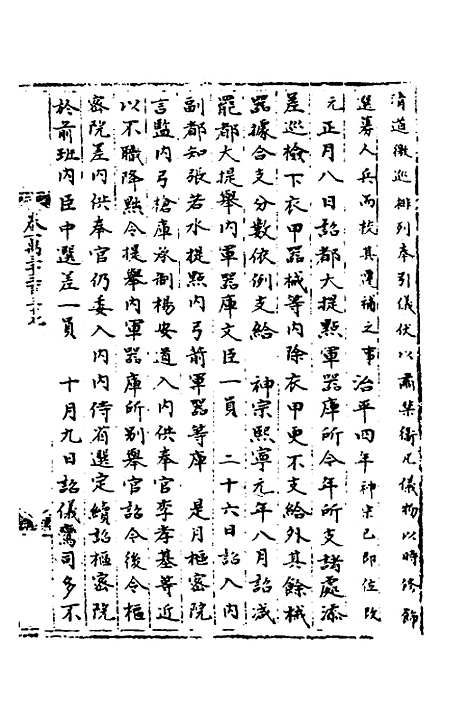 清道徼巡排列奉引儀仗以肅禁衛凡儀物以時修飾
選募人兵而校其遷補之事 治平四年神宗已即位改
元正月八日詔都大提點軍器庫所令年所支諸處添
差巡檢下衣甲器械等內除衣甲更不支給外其餘械
器據合支分數依例支給 神宗熙寧元年八月詔減
罷都大提舉內軍器庫文臣一員 二十六日詔入內
副都知張若水提點內弓箭軍器等庫 是月樞密院
言監內弓槍庫承制楊安道入內供奉官李孝基等近
以不職降黜令提舉內軍器庫所別舉官詔令後令樞
密院差內供奉官仍委入內內侍省選定續詔樞密院
於前班內臣中選差一員 十月九日詔儀鸞司多不